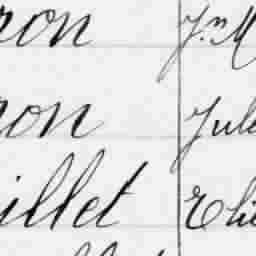 ron Jn M
ron Jule
illet Elie